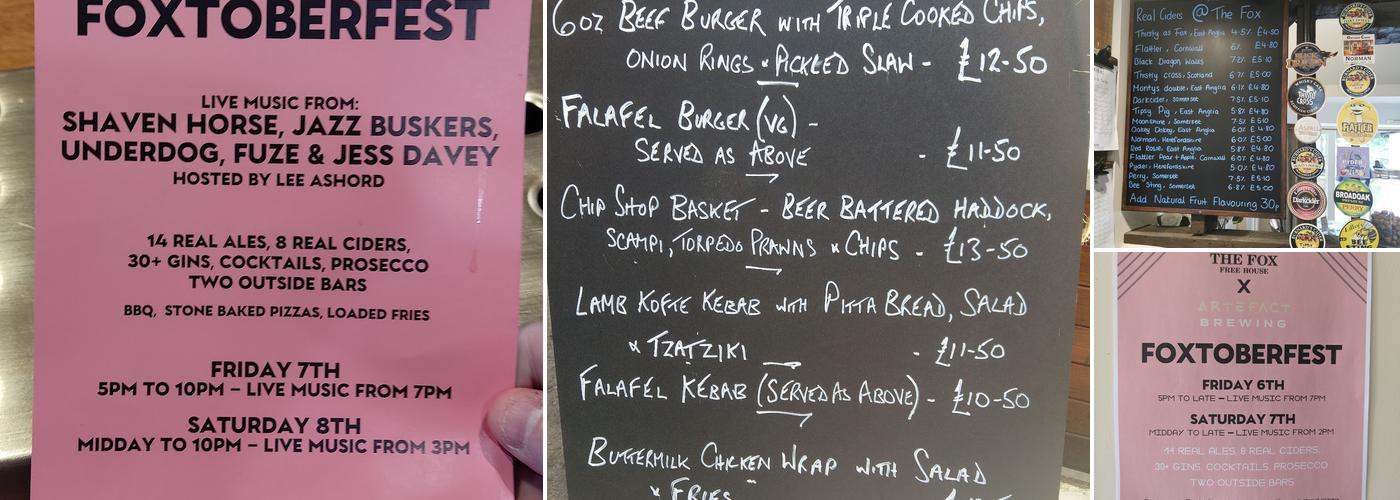 FOXTOBERFEST
LIVE MUSIC FROM:
SHAVEN HORSE, JAZZ BUSKERS,
UNDERDOG, FUZE & JESS DAVEY
HOSTED BY LEE ASHORD
14 REAL ALES, 8 REAL CIDERS,
30+ GINS, COCKTAILS, PROSECCO
TWO OUTSIDE BARS
BBQ, STONE BAKED PIZZAS, LOADED FRIES
FRIDAY 7TH
5PM TO 10PM – LIVE MUSIC FROM 7PM
SATURDAY 8TH
MIDDAY TO 10PM – LIVE MUSIC FROM 3PM
6oz BEEF BURGER WITH TRIPLE COOKED CHIPS,
ONION RINGS & PICKLED SLAW - £12-50
FALAFEL BURGER (VG) -
SERVED AS ABOVE - £11-50
CHIP SHOP BASKET - BEER BATTERED HADDOCK,
SCAMPI, TORPEDO PRAWNS & CHIPS - £13-50
LAMB KOFTE KEBAB WITH PITTA BREAD, SALAD
& TZATZIKI - £11-50
FALAFEL KEBAB (SERVED AS ABOVE) - £10-50
BUTTERMILK CHICKEN WRAP WITH SALAD
& FRIES
Real Ciders @ The Fox
Thirsty as Fox, East Anglia 4.5% £4.50
Flattler, Cornwall 6% £4.80
Black Dragon, Wales 7.2% £5.10
Thistly cross, Scotland 6.7% £5.00
Montys double, East Anglia 6.1% £4.80
Darkcider, Somerset 7.5% £5.10
Tipsy Pig, East Anglia 5.8% £4.80
Moonshine, Somerset 7.5% £5.10
Oakey Dokey, East Anglia 6.0% £4.80
Norman, Herefordshire 6.0% £5.00
Red Rosie, East Anglia 5.8% £4.80
Flattler Pear + Apple, Cornwall 6.0% £4.80
Pyder, Herefordshire 5.0% £4.80
Perry, Somerset 7.5% £5.10
Bee Sting, Somerset 6.8% £5.00
Add Natural Fruit Flavouring 30p
BLACK DRAGON
THISTLY CROSS
ASPALL
DarkCider
NORMAN
FLATTLER
PYDER
BROADOAK
PERRY
BEE STING
THE FOX
FREE HOUSE
X
ARTEFACT
BREWING
FOXTOBERFEST
FRIDAY 6TH
5PM TO LATE – LIVE MUSIC FROM 7PM
SATURDAY 7TH
MIDDAY TO LATE – LIVE MUSIC FROM 2PM
14 REAL ALES, 8 REAL CIDERS,
30+ GINS, COCKTAILS, PROSECCO
TWO OUTSIDE BARS